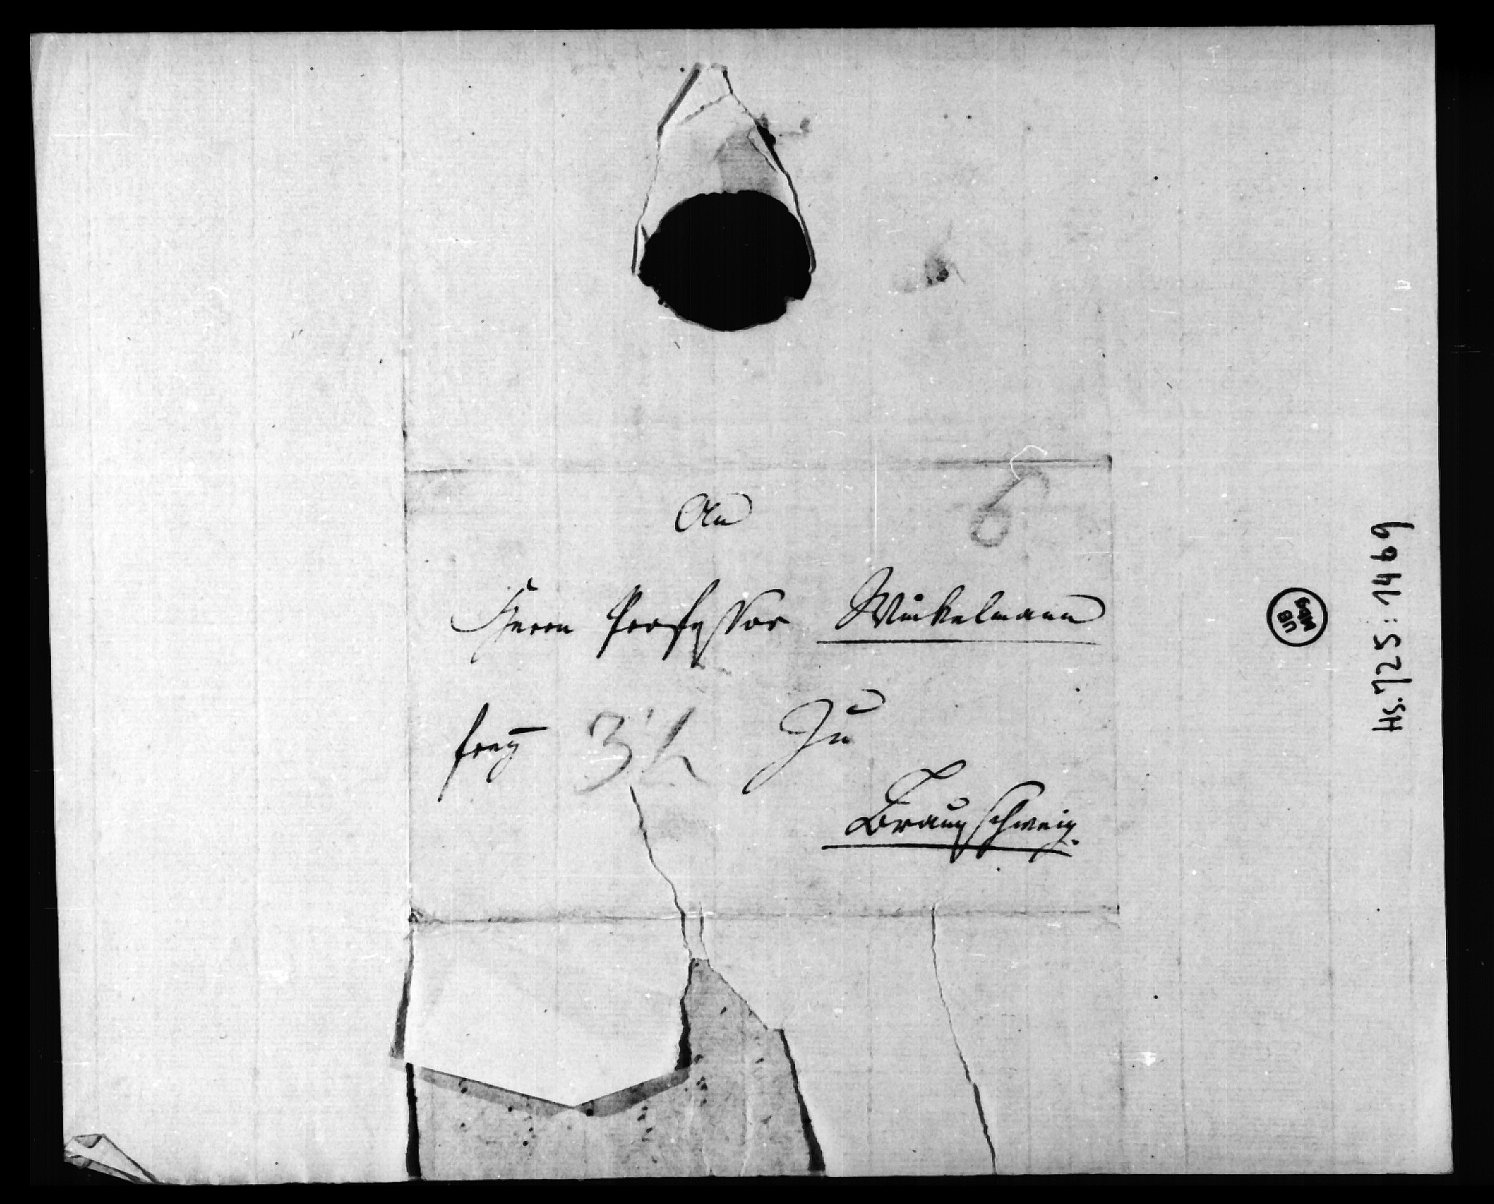 6
An
Herrn Professor Winkelmann
frey
Zu
Braunschweig.
UB
Mbg
Hs. 725:1469